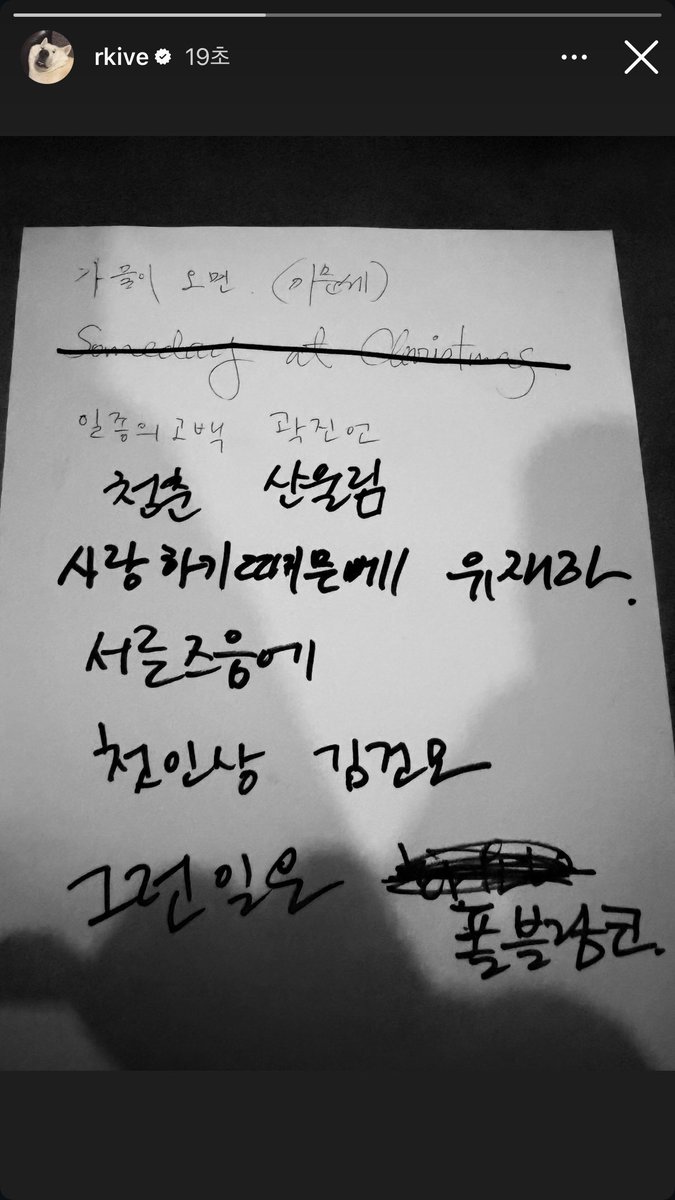 rkive 19초
가을이 오면. (이문세)
Someday at Christmas
일종의고백 곽진언
청춘 산울림
사랑하기때문에 유재하.
서른즈음에
첫인상 김건모
그런일은
폴블랑코.